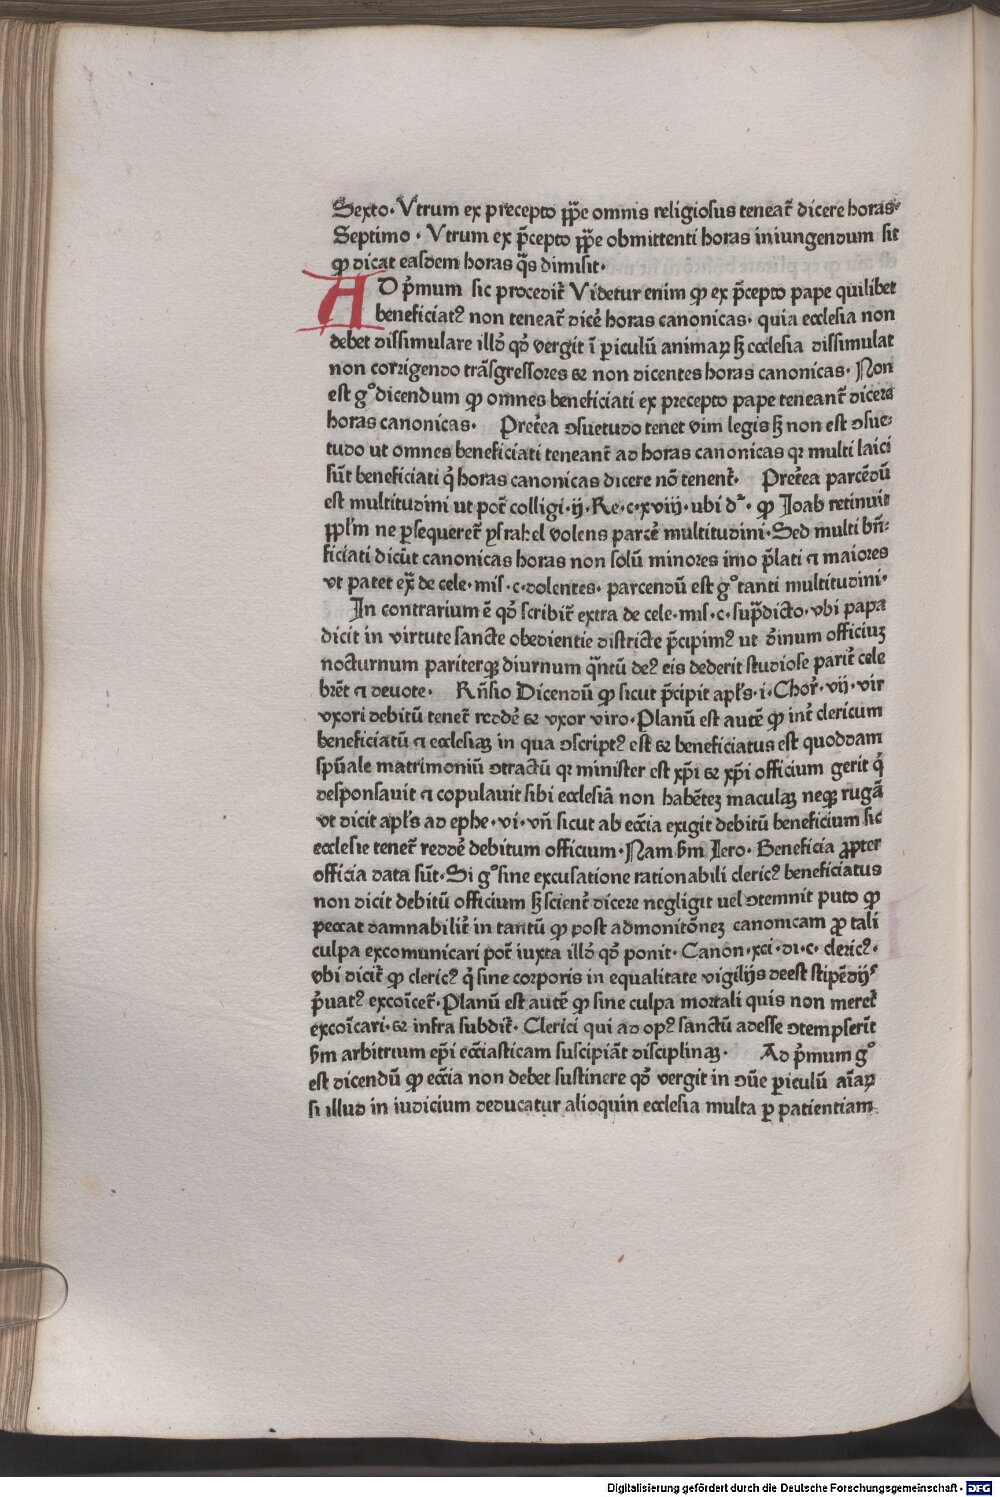 Sexto· Vtrum ex precepto ꝓp̄e omnis religiosus teneat᷑ dicere horas·
Septimo · Vtrum ex p̄cepto ꝓp̄e obmittenti horas iniungendum sit
ꝙ dicat easdem horas q̄s dimisit·
AD p̓mum sic procedit᷑ Videtur enim ꝙ ex p̄cepto pape quilibet
beneficiatꝰ non teneat᷑ dice᷑ horas canonicas· quia ecclesia non
debet dissimulare illd̓ qd̓ vergit ī ꝑiculū animaꝝ sꝫ ecclesia dissimulat
non corrigendo trāsgressores ⁊ non dicentes horas canonicas· Non
est gͦ dicendum ꝙ omnes beneficiati ex precepto pape teneant᷑ dicere
horas canonicas· Pret᷑ea ꝯsuetudo tenet vim legis sꝫ non est ꝯsue⸗
tudo ut omnes beneficiati teneant᷑ ad horas canonicas qꝛ multi laici
sūt beneficiati q̓ horas canonicas dicere nō tenent᷑· Pret᷑ea parcēdū
est multitudini ut pot᷑ colligi·ij·Re·c·xviij·ubi dꝛ· ꝙ Joab retinuit
ꝓpl̓m ne ꝑsequeret᷑ ysrahel volens parce᷑ multitudini·Sed multi bn̄⸗
ficiati dicūt canonicas horas non solū minores imo p̄lati ⁊ maiores
vt patet ex̄ de cele·mis·c·dolentes· parcendū est gͦ tanti multitudini·
In contrarium ē qd̓ scribit᷑ extra de cele·mis·c·sup̄dicto·vbi papa
dicit in virtute sancte obedientie districte p̄cipimꝰ ut d̓inum officiuꝫ
nocturnum pariterqꝫ diurnum q̄ntū deꝰ eis dederit studiose parit᷑ cele
brēt ⁊ deuote· Rn̄sio Dicendū ꝙ sicut p̄cipit apl̓s·i·Chor᷑·vij·vir
vxori debitū tenet᷑ redde᷑ ⁊ vxor viro·Planū est autē ꝙ int᷑ clericum
beneficiatū ⁊ ecclesiaꝫ in qua ꝯscriptꝰ est ⁊ beneficiatus est quoddam
spūale matrimoniū ꝯtractū qꝛ minister est xp̄i ⁊ xp̄i officium gerit q̓
desponsauit ⁊ copulauit sibi ecclesiā non habēteꝫ maculaꝫ neqꝫ rugā
vt dicit apl̓s ad ephe·vi·vn̄ sicut ab ecc̄ia exigit debitū beneficium sic
ecclesie tenet᷑ redde᷑ debitum officium·Nam ẜm Jero· Beneficia ꝓpter
officia data sūt·Si gͦ sine excusatione rationabili clericꝰ beneficiatus
non dicit debitū officium sꝫ scient᷑ dicere negligit uel ꝯtemnit puto ꝙ
peccat damnabilit᷑ in tantū ꝙ post admonitōneꝫ canonicam ꝓ tali
culpa excomunicari pot᷑ iuxta illd̓ qd̓ ponit· Canon·xci·di·c· clericꝰ·
vbi dicit᷑ ꝙ clericꝰ q̓ sine corporis in equalitate vigilijs deest stipēdijs
p̓uatꝰ excoīcet᷑·Planū est autē ꝙ sine culpa mortali quis non meret᷑
excoīcari·⁊ infra subdit᷑· Clerici qui ad opꝰ sanctū adesse ꝯtempserīt
ẜm arbitrium ep̄i ecc̄iasticam suscipiāt disciplinaꝫ· Ad p̓mum gͦ
est dicendū ꝙ ecc̄ia non debet sustinere qd̓ vergit in ꝯūe ꝑiculū aīaꝝ
si illud in iudicium deducatur alioquin ecclesia multa ꝑ patientiam
Digitalisierung gefördert durch die Deutsche Forschungsgemeinschaft - DFG